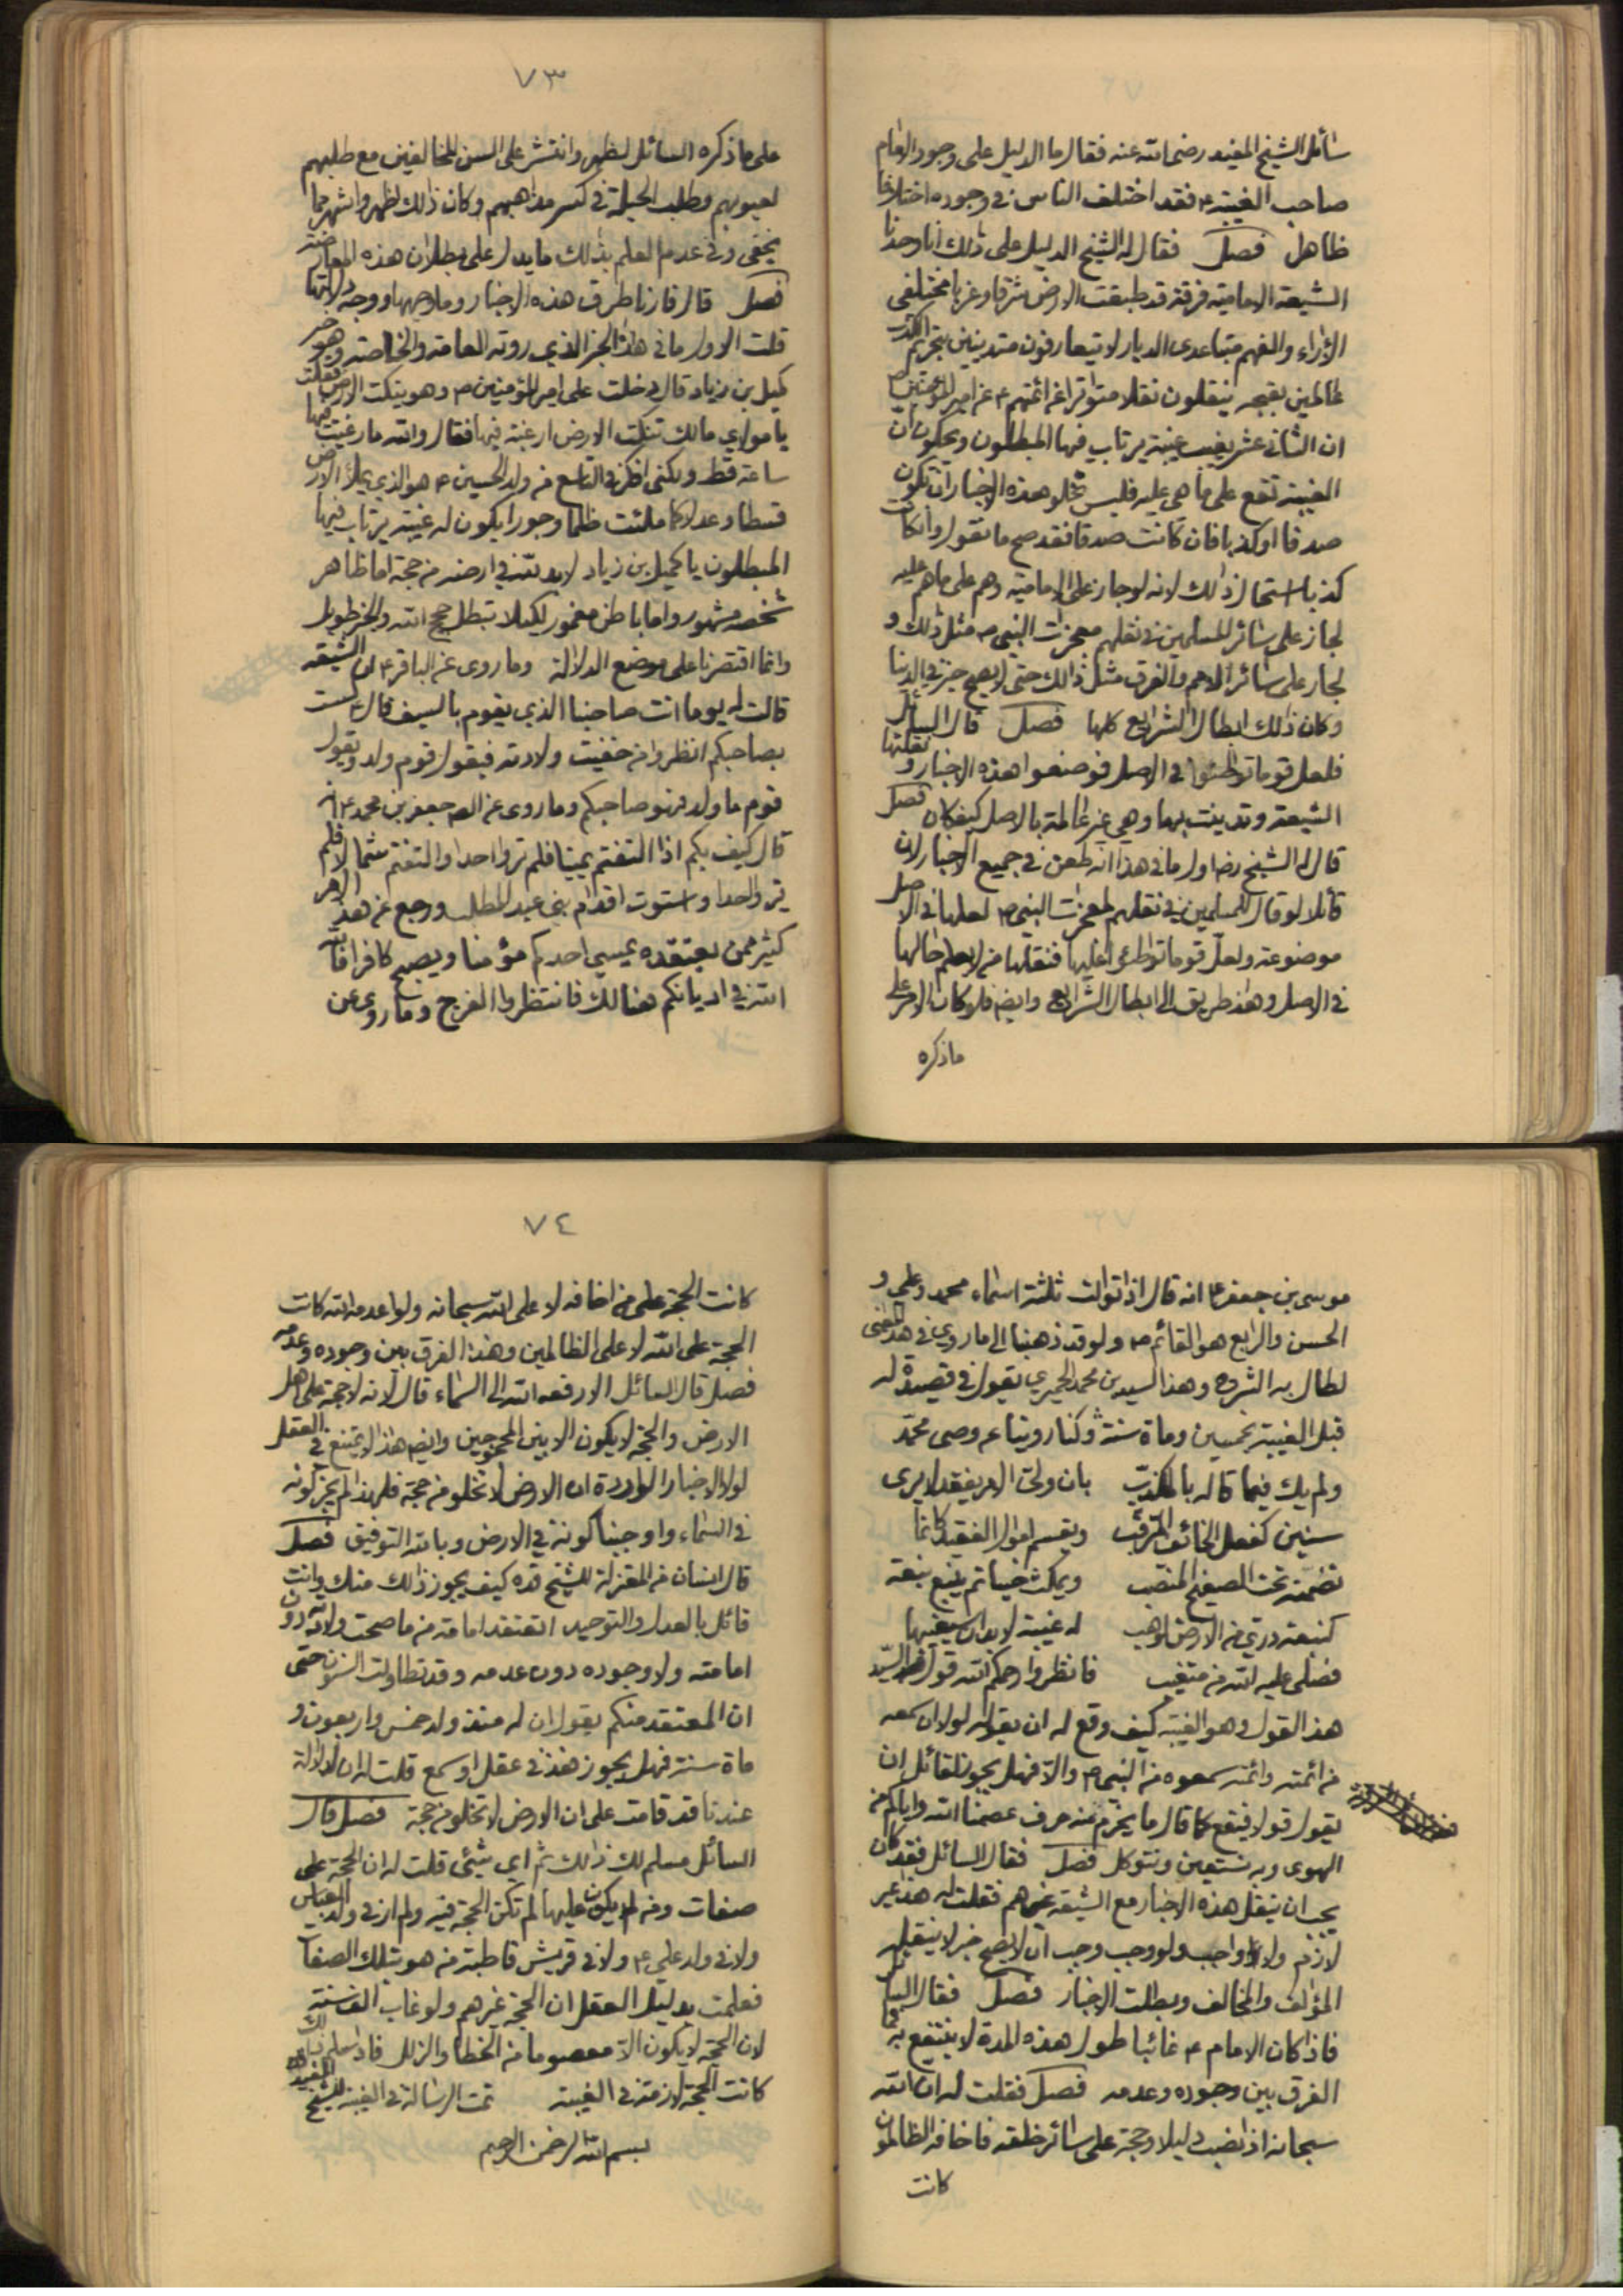 سائل الشيخ المفيد رضي الله عنه فقال ما الدليل على وجود الامام
صاحب الغيبة ع فقد اختلف الناس في وجوده اختلافا
ظاهرا فصل فقال له الشيخ الدليل على ذلك انا وجدنا
الشيعة الامامية فرقة قد طبقت الارض شرقا وغربا مختلفي
الآراء والهمم متباعدي الديار لا يتعارفون متدينين بتحريم الكذب
عالمين بقبحه ينقلون نقلا متواترا عن ائمتهم ع عن امير المؤمنين ص
ان الثاني عشر يغيب غيبة يرتاب فيها المبطلون ويحكون ان
الغيبة تقع على ما هي عليه فليس تخلو هذه الاخبار ان تكون
صدقا او كذبا فان كانت صدقا فقد صح ما نقول وان كانت
كذبا استحال ذلك لانه لو جاز على الامامية وهم على ما هم عليه
لجاز على سائر المسلمين في نقلهم معجزات النبي ص مثل ذلك و
لجاز على سائر الامم والفرق مثل ذلك حتى لا يصح خبر في الدنيا
وكان ذلك ابطال الشرايع كلها فصل قال السائل
فلعل قوما تواطئوا في الاصل فوضعوا هذه الاخبار ونقلتها
الشيعة وتدينت بها وهي غير عالمة بالاصل كيف كان فصل
قال له الشيخ رضه اول ما في هذا انه طعن في جميع الاخبار لان
قائلا لو قال للمسلمين في نقلهم لمعجزات النبي ص لعلها في الاصل
موضوعة ولعل قوما تواطئوا عليها فنقلها من لا يعلم حالها
في الاصل وهذا طريق الى ابطال الشرايع وايضا فلو كان الامر على
ماذكره
٧٣
على ما ذكره السائل لظهر وانتشر على السن المخالفين مع طلبهم
لعيوبهم وطلب الحيلة في كسر مذاهبهم وكان ذلك لظهر واشهر مما
يخفى وفي عدم العلم بذلك ما يدل على بطلان هذه المعارضة
فصل قال فارنا طرق هذه الاخبار وما وجهها ووجه دلالتها
قلت الاول ما في هذا الخبر الذي روته العامة والخاصة وهو خبر
كميل بن زياد قال دخلت على امير المؤمنين ص وهو ينكت الارض فقلت
يا مولاي ما لك تنكت الارض ارغبة فيها فقال والله ما رغبت فيها
ساعة قط ولكني افكر في التاسع من ولد الحسين ع هو الذي يملأ الارض
قسطا وعدلا كما ملئت ظلما وجورا يكون له غيبة يرتاب فيها
المبطلون يا كميل بن زياد لا بد لله في ارضه من حجة اما ظاهر
شخصه مشهور واما باطن مغمور لكيلا تبطل حجج الله والخبر طويل
وانما اقتصرنا على موضع الدلالة وما روى عن الباقر ع ان الشيعة
قالت له يوما انت صاحبنا الذي يقوم بالسيف قال لست
بصاحبكم انظروا من خفيت ولادته فيقول قوم ولد ويقول
قوم ما ولد فهو صاحبكم وما روى عن الصه جعفر بن محمد ع انه
قال كيف بكم اذا التفتم يمينا فلم تروا احدا والتفتم شمالا فلم
تروا احدا واستوت اقدام بني عبد المطلب ورجع عن هذا الامر
كثير ممن يعتقده يمسي احدكم مؤمنا ويصبح كافرا فالله
الله في اديانكم هنالك فانتظروا الفرج وما روى عن
موسى بن جعفر ع انه قال اذا توالت ثلثة اسماء محمد وعلي و
الحسن والرابع هو القائم ص ولو قد ذهبنا الى ما روي في هذا المعنى
لطال به الشرح وهذا السيد بن محمد الحميري يقول في قصيدة له
قبل الغيبة بخمسين وماة سنة وكنا روينا عن وصى محمد
ولم يك فيما قاله بالمكذب بان ولى الامر يفقد لا يرى
سنين كفعل الخائف المترقب ويقسم اموال الفقيد كانما
تضمنه تحت الصفيح المنصب ويمكث حينا ثم ينبع نبعة
كنبعة دري من الارض يوهب له غيبة لا بد ان سيغيبها
فصلى عليه الله من متغيب فانظروا رحمكم الله قول السيد
هذا القول وهو الغيبة كيف وقع له ان يقوله لولا ان سمعه
من ائمته وائمته سمعوه من النبي ص والا فهل يجوز لقائل ان
يقول قولا فيقع كما قال ما يخرم منه حرف عصمنا الله واياكم من
الهوى وبه نستعين ونتوكل فصل فقال السائل فقد كان
يجب ان ينقل هذه الاخبار مع الشيعة غيرهم فقلت له هذا غير
لازم ولا واجب ولو وجب وجب ان لا يصح خبر لا ينقله
المؤالف والمخالف وبطلت الاخبار فصل فقال السائل
فاذا كان الامام ع غائبا طول هذه المدة لا ينتفع به فما
الفرق بين وجوده وعدمه فصل فقلت له ان الله
سبحانه اذا نصب دليلا وحجة على سائر خلقه فاخافه الظالمون
كانت
٧٤
كانت الحجة على من اخافه لا على الله سبحانه ولو اعدمه الله كانت
الحجة على الله لا على الظالمين وهذا الفرق بين وجوده وعدمه
فصل قال السائل الا رفعه الله الى السماء قال لانه لا حجة على اهل
الارض والحجة لا يكون الا بين المحجوجين وايضا هذا لا يمتنع في العقل
لولا الاخبار الواردة ان الارض لا تخلو من حجة فلهذا لم يجز كونه
في السماء واوجبنا كونه في الارض وبالله التوفيق فصل
قال انسان من المعتزلة للشيخ قده كيف يجوز ذلك منك وانت
قائل بالعدل والتوحيد اتعتقد امامة من ما صحت ولادته دون
امامته ولا وجوده دون عدمه وقد تطاولت السنون حتى
ان المعتقد منكم يقول ان له منذ ولد خمس واربعون و
ماة سنة فهل يجوز هذا في عقل او سمع قلت له ان الدلالة
عندنا قد قامت على ان الارض لا تخلو من حجة فصل قال
السائل مسلم لك ذلك ثم اي شيئ قلت له ان الحجة على
صفات ومن لم يكن عليها لم تكن الحجة فيه ولم ار في ولد العباس
ولا في ولد علي ع ولا في قريش قاطبة من هو بتلك الصفات
فعلمت بدليل العقل ان الحجة غيرهم ولو غاب الف سنة
لان الحجة لا يكون الا معصوما من الخطا والزلل فاذا سلم ذلك
كانت الحجة لازمة في الغيبة تمت الرسالة في الغيبة للشيخ المفيد
بسم الله الرحمن الرحيم